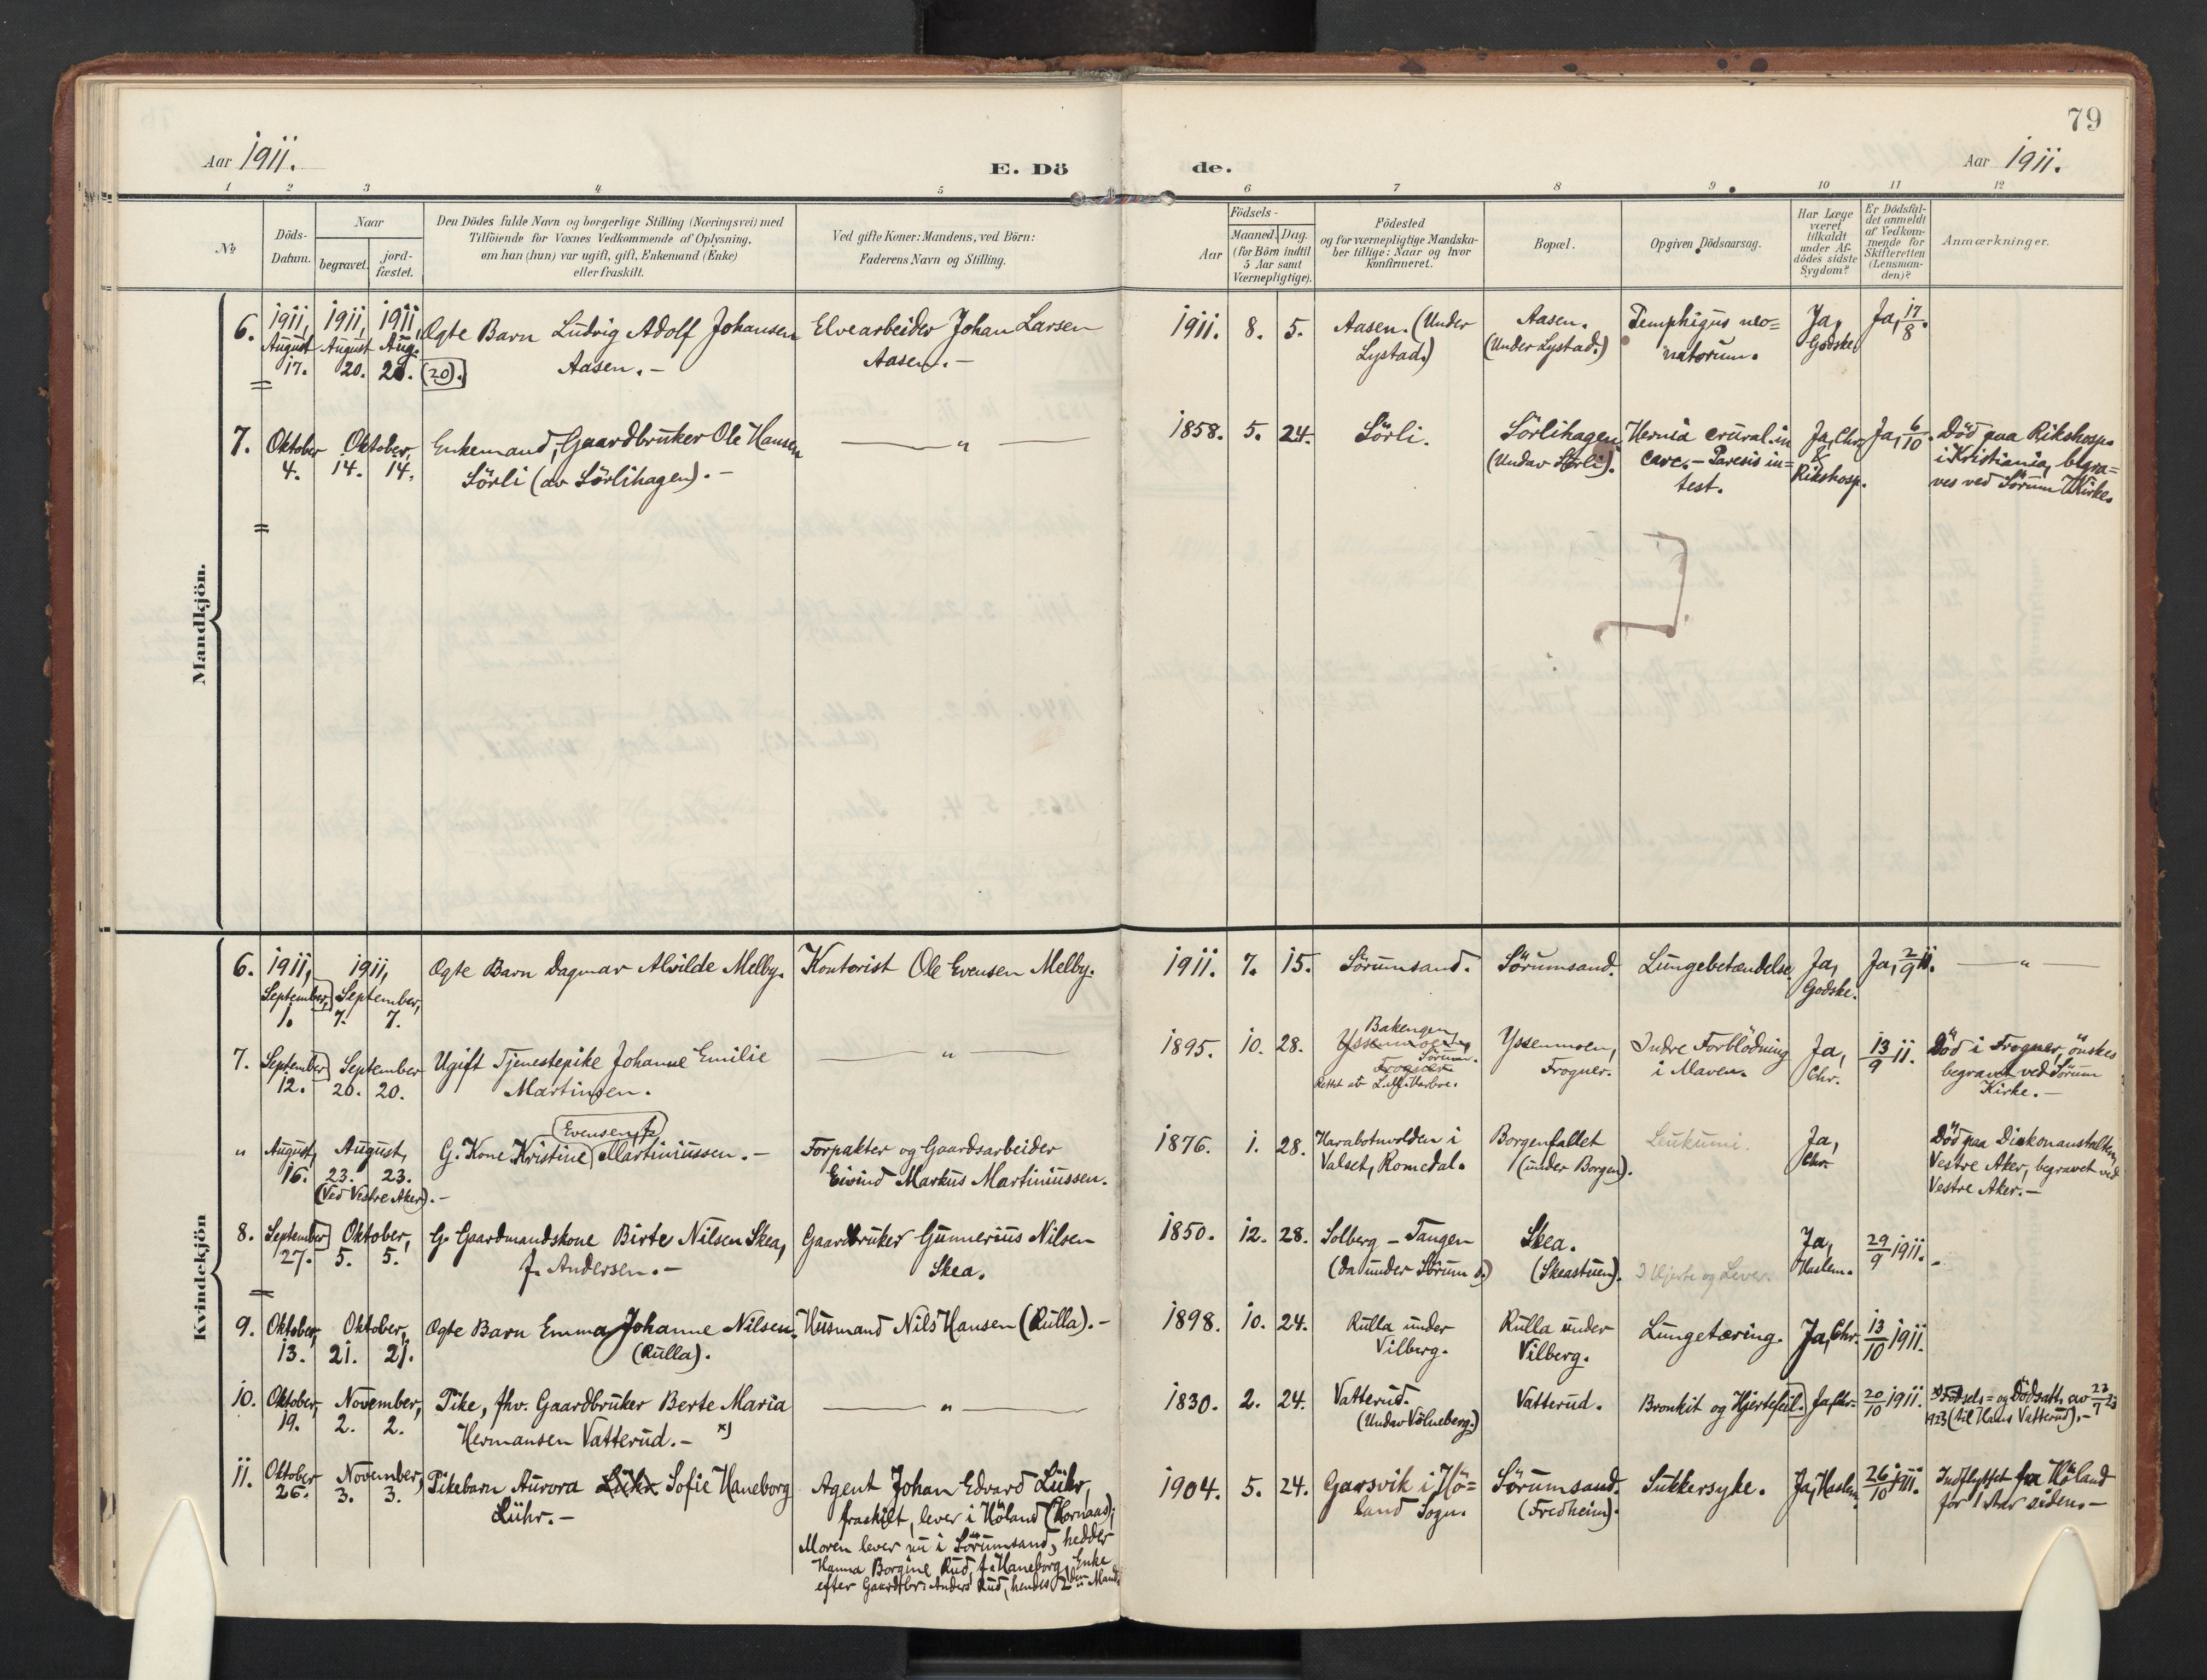 79
Aar 1911.
E. Dö
de.
Aar 1911.
1 2 3 4 5 6 7 8 9 10 11 12
No
Döds-
Datum.
Naar
begravet.
jord-
fæstet.
Den Dödes fulde Navn og borgerlige Stilling (Næringsvei) med
Tilföiende for Voxnes Vedkommende af Oplysning,
om han (hun) var ugift, gift, Enkemand (Enke)
eller fraskilt.
Ved gifte Koner: Mandens, ved Börn:
Faderens Navn og Stilling.
Födsels-
Aar
Maaned. Dag.
(for Börn indtil
5 Aar samt
Værnepligtige).
Födested
og for værnepligtige Mandska-
ber tillige: Naar og hvor
konfirmeret.
Bopæl.
Opgiven Dödsaarsag.
Har Læge
været
tilkaldt
under Af-
dödes sidste
Sygdom?
Er Dödsfal-
det anmeldt
af Vedkom-
mende for
Skifteretten
(Lensman-
den)?
Anmærkninger.
Mandkjön.
6.
1911, August 17.
1911, August 20.
1911, Aug. 20.
(20).
Ægte Barn Ludvig Adolf Johansen
Aasen.-
Elvearbeider Johan Larsen
Aasen.-
1911. 8. 5.
Aasen. (Under
Lystad.)
Aasen.
(Under Lystad.)
Pemphigus neo=
natorum.
Ja,
Godske.
Ja, 17/8.
7.
Oktober 4.
Oktober, 14. 14.
Enkemand, Gaardbruker Ole Hansen
Sörli (av Sörlihagen).-
— " —
1858. 5. 24.
Sörli.
Sörlihagen
(Undav Sörli).
Hernia crural. in
carc. - Paresis in=
test.
Ja, Chr.
&
Rikshosp.
Ja, 6/10.
Död paa Rikshosp.
i Kristiania, begra=
ves ved Sörum Kirke.
Kvindekjön
6.
1911, September, 1.
1911, September, 7. 7.
Ægte Barn Dagmar Alvilde Melby.
Kontorist Ole Evensen Melby.
1911. 7. 15.
Sörumsand.
Sörumsand.
Lungebetændelse.
Ja,
Godske.
Ja, 2/9 11.
— " —
7.
September 12.
September 20. 20.
Ugift Tjenestepike Johanne Emilie
Martinsen.
— " —
1895. 10. 28.
Bakengen,
Yssenmoen,
Sörum.
Frogner
Rettet av
Yssenmoen,
Frogner.
Indre Forblödning
i Maven.
Ja,
Chr.
13/9 11.
Död i Frogner, önskes
begravet ved Sörum
Kirke.-
"
August, 16.
August, 23. 23.
(Ved Vestre Aker).-
Evensen f.
G. Kone Kristine Martiniussen.-
Forpakter og Gaardsarbeider
Eivind Markus Martiniussen.
1876. 1. 28.
Harabotnvolden i
Valset, Romedal.
Borgenfallet
(under Borgen).
Leukumi.
Ja,
Chr.
Död paa Diakonanstalten,
Vestre Aker, begravet ved
Vestre Aker.-
8.
September 27.
Oktober, 5. 5.
G. Gaardmandskone Birte Nilsen Skea,
f. Andersen.-
Gaardbruker Gunnerius Nilsen
Skea.
1850. 12. 28.
Solberg - Tangen
(Da under Sörum s.)
Skea.
(Skeastuen).
I Hjerte og Lever.
Ja,
Haslem.
29/9 1911.
9.
Oktober, 13.
Oktober, 21. 21.
Ægte Barn Emma Johanne Nilsen
(Rulla).
Husmand Nils Hansen (Rulla).-
1898. 10. 24.
Rulla under
Vilberg.
Rulla under
Vilberg.
Lungetæring.
Ja, Chr.
13/10 1911.
10.
Oktober, 19.
November, 2. 2.
Pike, fhv. Gaardbruker Berte Maria
Hermansen Vatterud.- x)
— " —
1830. 2. 24.
Vatterud.
(Undav Völneberg.)
Vatterud.
Bronkit og Hjertefeil.
Ja, Chr.
20/10 1911.
x) Födsels= og Dödsatt. av 23/7 23
1923 (til Hans Vatterud).-
11.
Oktober 26.
November, 3. 3.
Pikebarn Aurora Lühr Sofie Haneborg
Lühr.-
Agent Johan Edvard Lühr,
fraskilt, lever i Höland (Hornaas);
Moren lever nu i Sörumsand, hedder
Hanna Borgine Rud, f. Haneborg, Enke
efter Gaardbr. Anders Rud, hendes 2den Mand.
1904. 5. 24.
Garsvik i Hö=
land Sogn.
Sörumsand.
(Fredheim).
Sukkersyke.
Ja, Haslem.
26/10 1911.
Indflyttet fra Höland
for 1 Aar siden.-